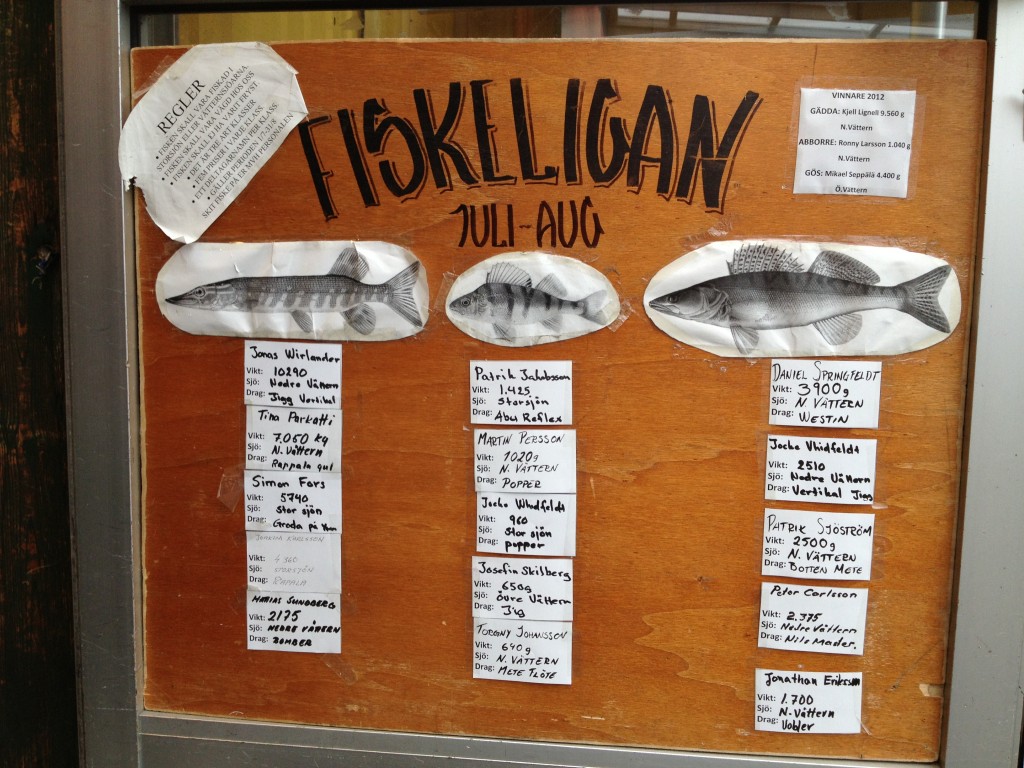 REGLER
• FISKEN SKALL VARA FISKAD I
STORSJÖN ELLER VÄTTERNSJÖARNA.
• FISKEN SKALL VARA VÄGD HOS OSS
• FISKEN SKALL EJ HA VARIT FRYST.
• DET ÄR TRE ART KLASSER
• FEM PRISER I VARJE KLASS.
• ETT DELTAGARNAMN PER KLASS.
• GÄLLER PERIODEN
SKIT FISKE PÅ ER MVH PERSONALEN
FISKELIGAN
JULI-AUG
VINNARE 2012
GÄDDA: Kjell Lignell 9.560 g
N.Vättern
ABBORRE: Ronny Larsson 1.040 g
N.Vättern
GÖS: Mikael Seppälä 4.400 g
Ö.Vättern
Jonas Wirlander
Vikt: 10290
Sjö: Nedre Vättern
Drag: Jigg Vertikal
Tina Parkatti
Vikt: 7.050 kg
Sjö: N. Vättern
Drag: Rappala gul
Simon Fors
Vikt: 5740
Sjö: Stor sjön
Drag: Groda på
Vikt: 4 360
Sjö: STORSJÖN
Drag: RAPALA
MATIAS SUNDBERG
Vikt: 2175
Sjö: NEDRE VÄTTERN
Drag: BOMBER
Patrik Jakobsson
Vikt: 1.425
Sjö: Storsjön
Drag: Abu Reflex
MARTIN PERSSON
Vikt: 1020g
Sjö: N. VÄTTERN
Drag: POPPER
Jocke Vhidfeldt
Vikt: 960
Sjö: Stor sjön
Drag: popper
Josefin Skilberg
Vikt: 650g
Sjö: Övre Vättern
Drag: Jig
TORGNY JOHANSSON
Vikt: 640g
Sjö: N. VÄTTERN
Drag: METE FLÖTE
DANIEL SPRINGFELDT
Vikt: 3900g
Sjö: N. VÄTTERN
Drag: WESTIN
Jocke Vhidfeldt
Vikt: 2510
Sjö: Nedre Vättern
Drag: Vertikal Jigg
PATRIK SJÖSTRÖM
Vikt: 2500g
Sjö: N. VÄTTERN
Drag: BOTTEN METE
Peter Carlsson
Vikt: 2.375
Sjö: Nedre Vättern
Drag: Nils Master.
Jonathan Eriksson
Vikt: 1.700
Sjö: N. Vättern
Drag: Vobler